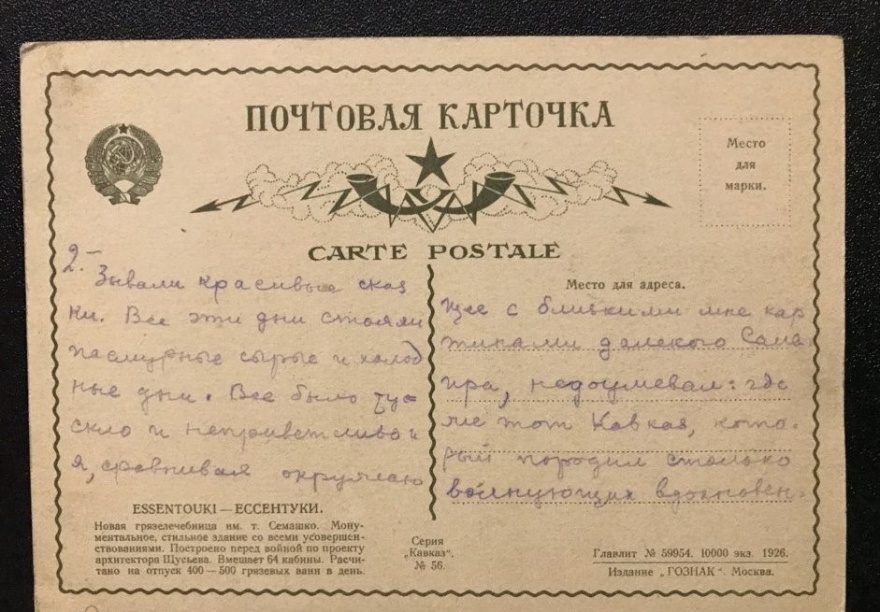 ПОЧТОВАЯ КАРТОЧКА
Место
для
марки.
CARTE POSTALE
2.–
Зывали красивые сказ
ки. Все эти дни стояли
пасмурные сырые и холод
ные дни. Все было тус-
скло и неприветливо и
я, сравнивая окружаю
Место для адреса.
щее с близкими мне кар
тинами далекого Сама
ира, недоумевал: где
же тот Кавказ, кото-
рый породил столько
волнующих вдохновен-
ESSENTOUKI — ЕССЕНТУКИ.
Новая грязелечебница им. т. Семашко. Мону-
ментальное, стильное здание со всеми усовершен-
ствованиями. Построено перед войной по проекту
архитектора Щусьева. Вмещает 64 кабины. Расчи-
тано на отпуск 400—500 грязевых ванн в день.
Серия
„Кавказ“.
№ 56.
Главлит № 59954. 10000 экз. 1926.
Издание „ГОЗНАК“. Москва.